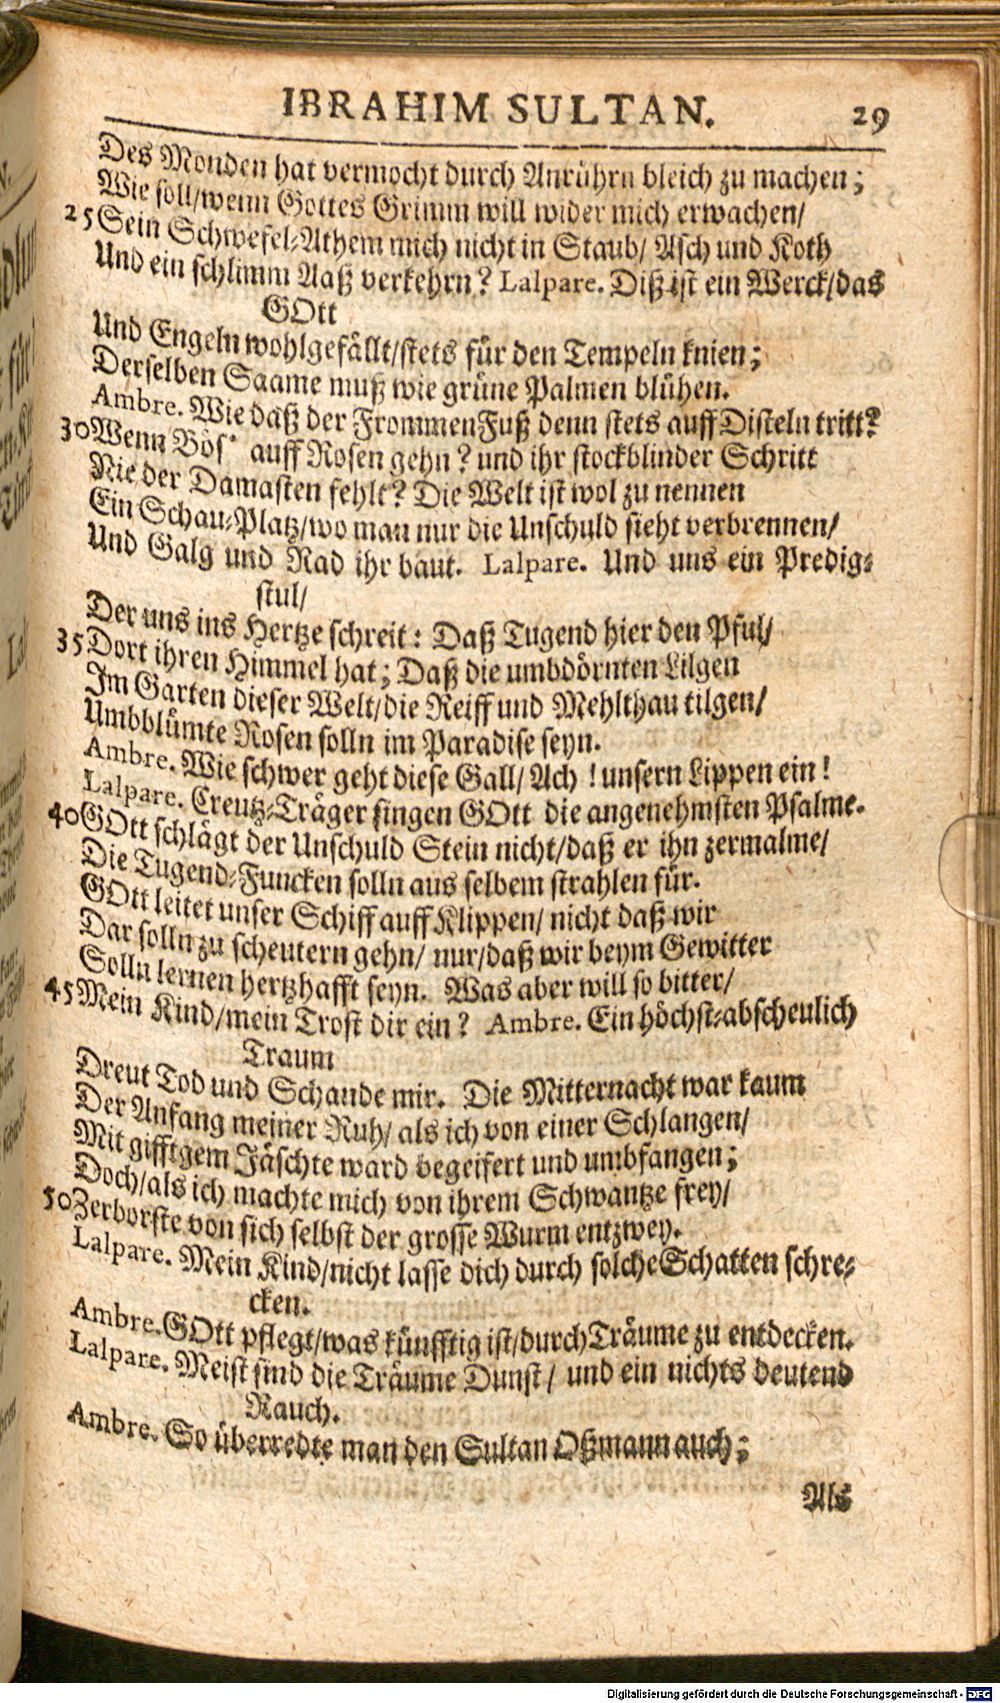 IBRAHIM SULTAN. 29
Des Monden hat vermocht durch Anrührn bleich zu machen;
Wie soll/wenn Gottes Grimm will wider mich erwachen/
25 Sein Schwefel-Athem mich nicht in Staub/ Asch und Koth
Und ein schlimm Aaß verkehrn? Lalpare. Diß ist ein Werck/das
GOtt
Und Engeln wohlgefällt/stets für den Tempeln knien;
Derselben Saame muß wie grüne Palmen blühen.
Ambre. Wie daß der Frommen Fuß denn stets auff Disteln tritt?
30 Wenn Bös' auff Rosen gehn? und ihr stockblinder Schritt
Nie der Damasten fehlt? Die Welt ist wol zu nennen
Ein Schau-Platz/wo man nur die Unschuld sieht verbrennen/
Und Galg und Rad ihr baut. Lalpare. Und uns ein Predig-
stul/
Der uns ins Hertze schreit: Daß Tugend hier den Pful/
35 Dort ihren Himmel hat; Daß die umbdörnten Lilgen
Im Garten dieser Welt/die Reiff und Mehlthau tilgen/
Umbblümte Rosen solln im Paradise seyn.
Ambre. Wie schwer geht diese Gall/ Ach ! unsern Lippen ein!
Lalpare. Creutz-Träger singen GOtt die angenehmsten Psalme.
40 GOtt schlägt der Unschuld Stein nicht/daß er ihn zermalme/
Die Tugend-Funcken solln aus selbem strahlen für.
GOtt leitet unser Schiff auff Klippen/ nicht daß wir
Dar solln zu scheutern gehn/ nur/daß wir beym Gewitter
Solln lernen hertzhafft seyn. Was aber will so bitter/
45 Mein Kind/mein Trost dir ein? Ambre. Ein höchst-abscheulich
Traum
Dreut Tod und Schande mir. Die Mitternacht war kaum
Der Anfang meiner Ruh/ als ich von einer Schlangen/
Mit gifftgem Jäschte ward begeifert und umbfangen;
Doch/als ich machte mich von ihrem Schwantze frey/
50 Zerborste von sich selbst der grosse Wurm entzwey.
Lalpare. Mein Kind/nicht lasse dich durch solche Schatten schre-
cken.
Ambre. GOtt pflegt/was künfftig ist/durch Träume zu entdecken.
Lalpare. Meist sind die Träume Dunst/ und ein nichts deutend
Rauch.
Ambre. So überredte man den Sultan Oßmann auch;
Als
Digitalisierung gefördert durch die Deutsche Forschungsgemeinschaft - DFG